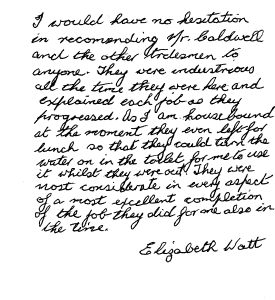 I would have no hesitation
in recomending Mr. Caldwell
and the other tradesmen to
anyone. They were industrious
all the time they were here and
explained each job as they
progressed. As I am housebound
at the moment they even left for
lunch so that they could turn the
water on in the toilet for me to use
it whilst they were out. They were
most considerate in every aspect
of a most excellent completion
of the job they did for me also in
the time.
Elizabeth Watt